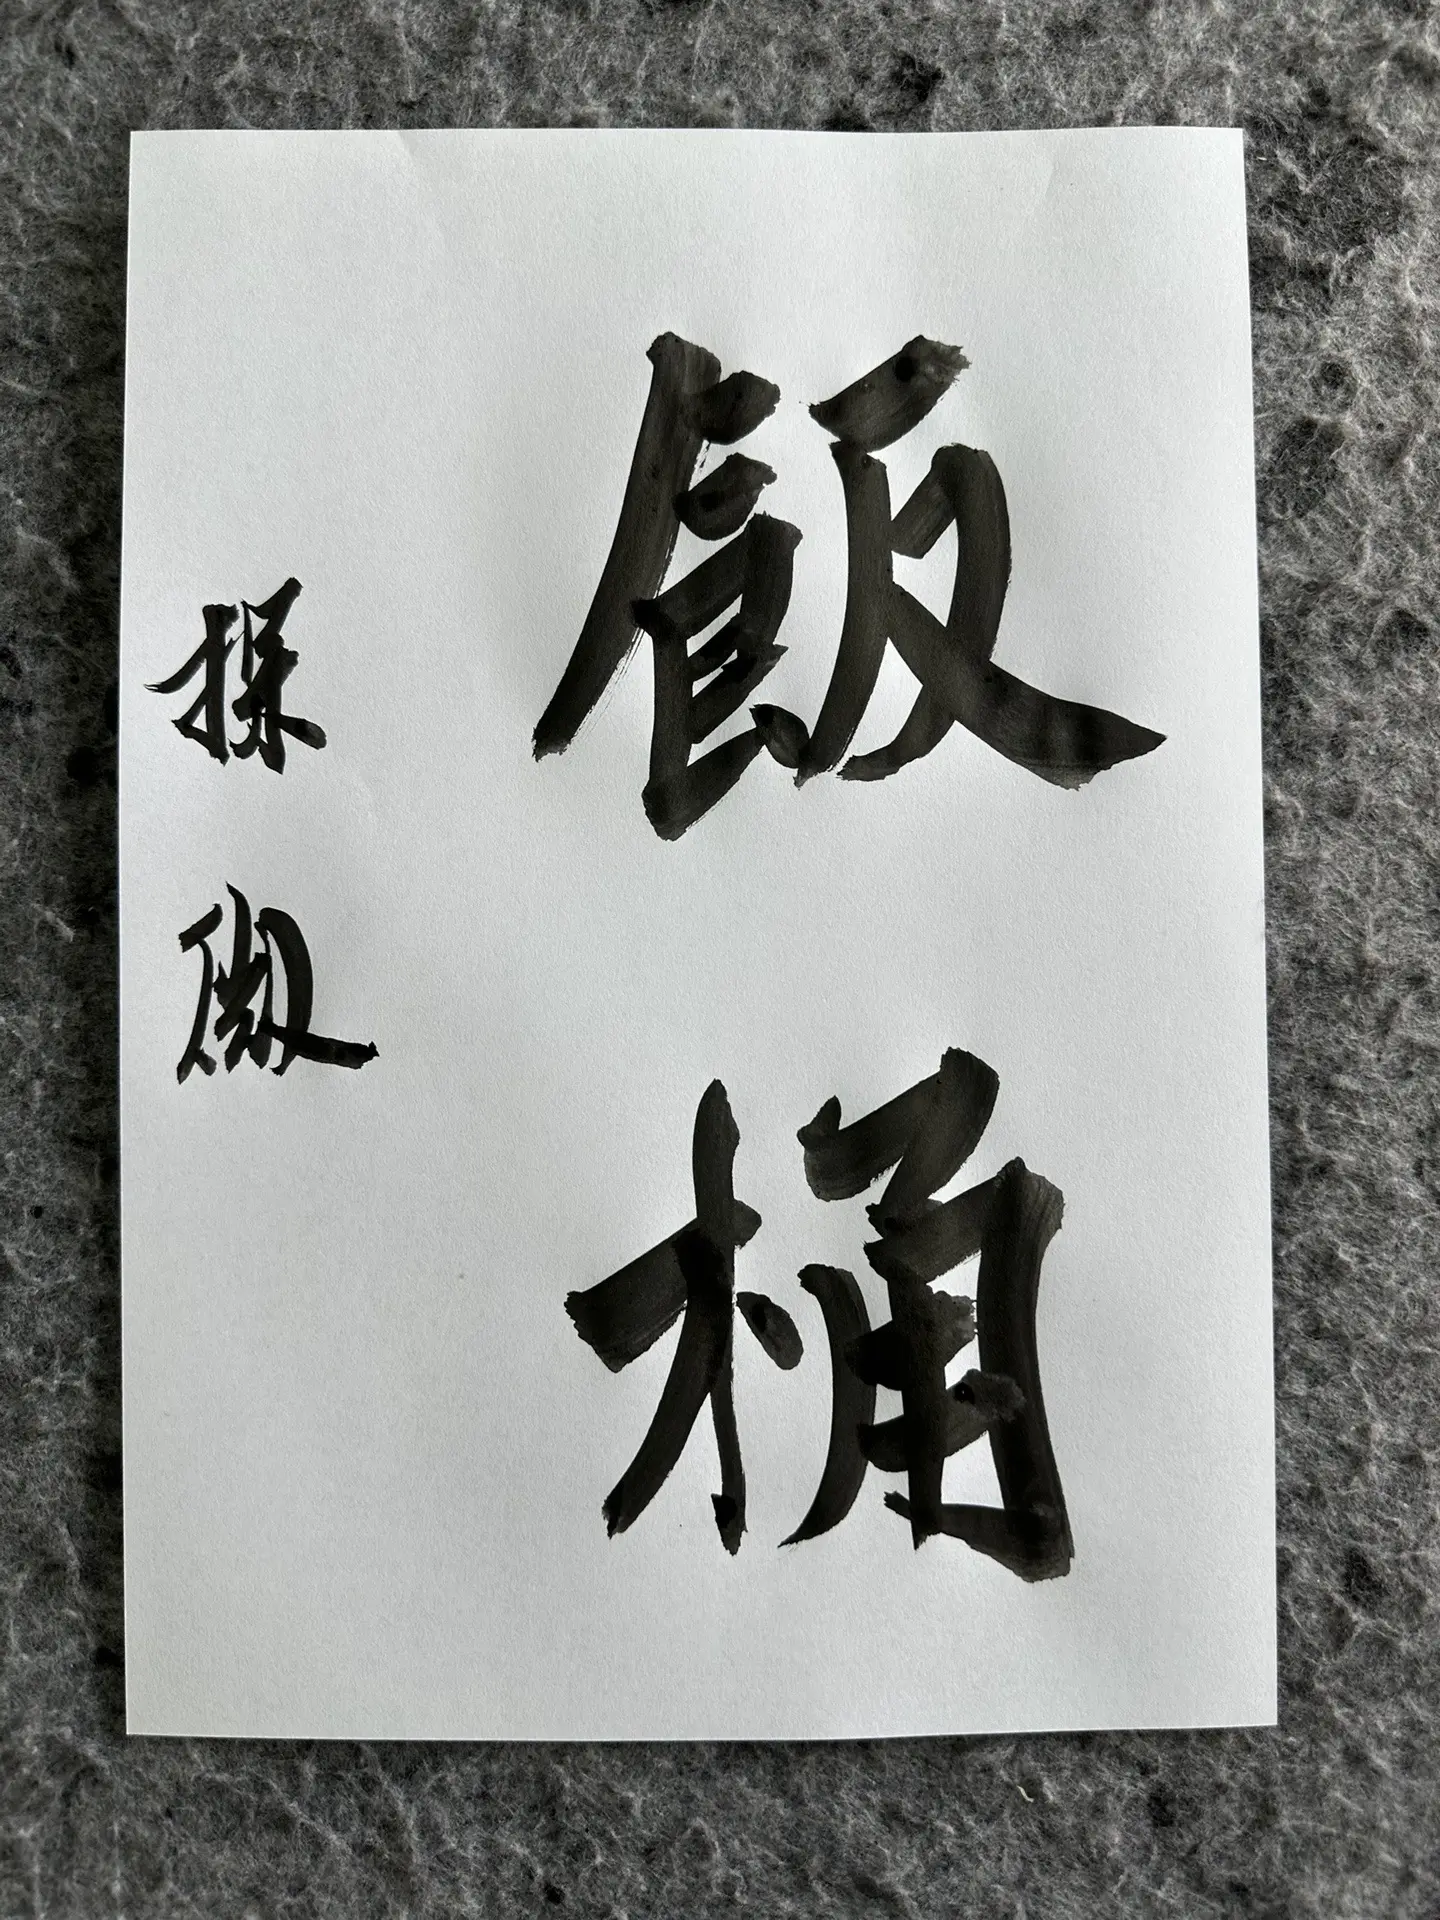 飯桶
探微